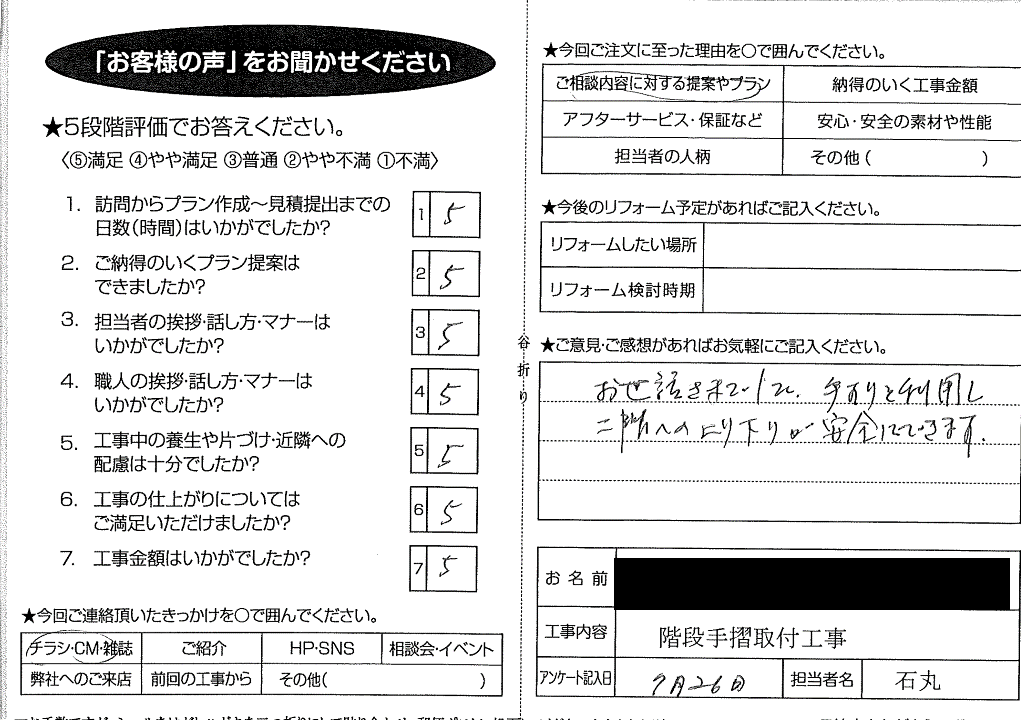 「お客様の声」をお聞かせください
★5段階評価でお答えください。
〈⑤満足 ④やや満足 ③普通 ②やや不満 ①不満〉
1. 訪問からプラン作成～見積提出までの
日数(時間)はいかがでしたか?
1 5
2. ご納得のいくプラン提案は
できましたか?
2 5
3. 担当者の挨拶・話し方・マナーは
いかがでしたか?
3 5
4. 職人の挨拶・話し方・マナーは
いかがでしたか?
4 5
5. 工事中の養生や片づけ・近隣への
配慮は十分でしたか?
5 5
6. 工事の仕上がりについては
ご満足いただけましたか?
6 5
7. 工事金額はいかがでしたか?
7 5
★今回ご連絡頂いたきっかけを○で囲んでください。
チラシ・CM・雑誌 ご紹介 HP・SNS 相談会・イベント
弊社へのご来店 前回の工事から その他( )
谷折り
★今回ご注文に至った理由を○で囲んでください。
ご相談内容に対する提案やプラン 納得のいく工事金額
アフターサービス・保証など 安心・安全の素材や性能
担当者の人柄 その他( )
★今後のリフォーム予定があればご記入ください。
リフォームしたい場所
リフォーム検討時期
★ご意見・ご感想があればお気軽にご記入ください。
お世話さまでした。手すりを利用し
二階への上り下りが安全にできます。
お名前
工事内容 階段手摺取付工事
アンケート記入日 9月26日 担当者名 石丸